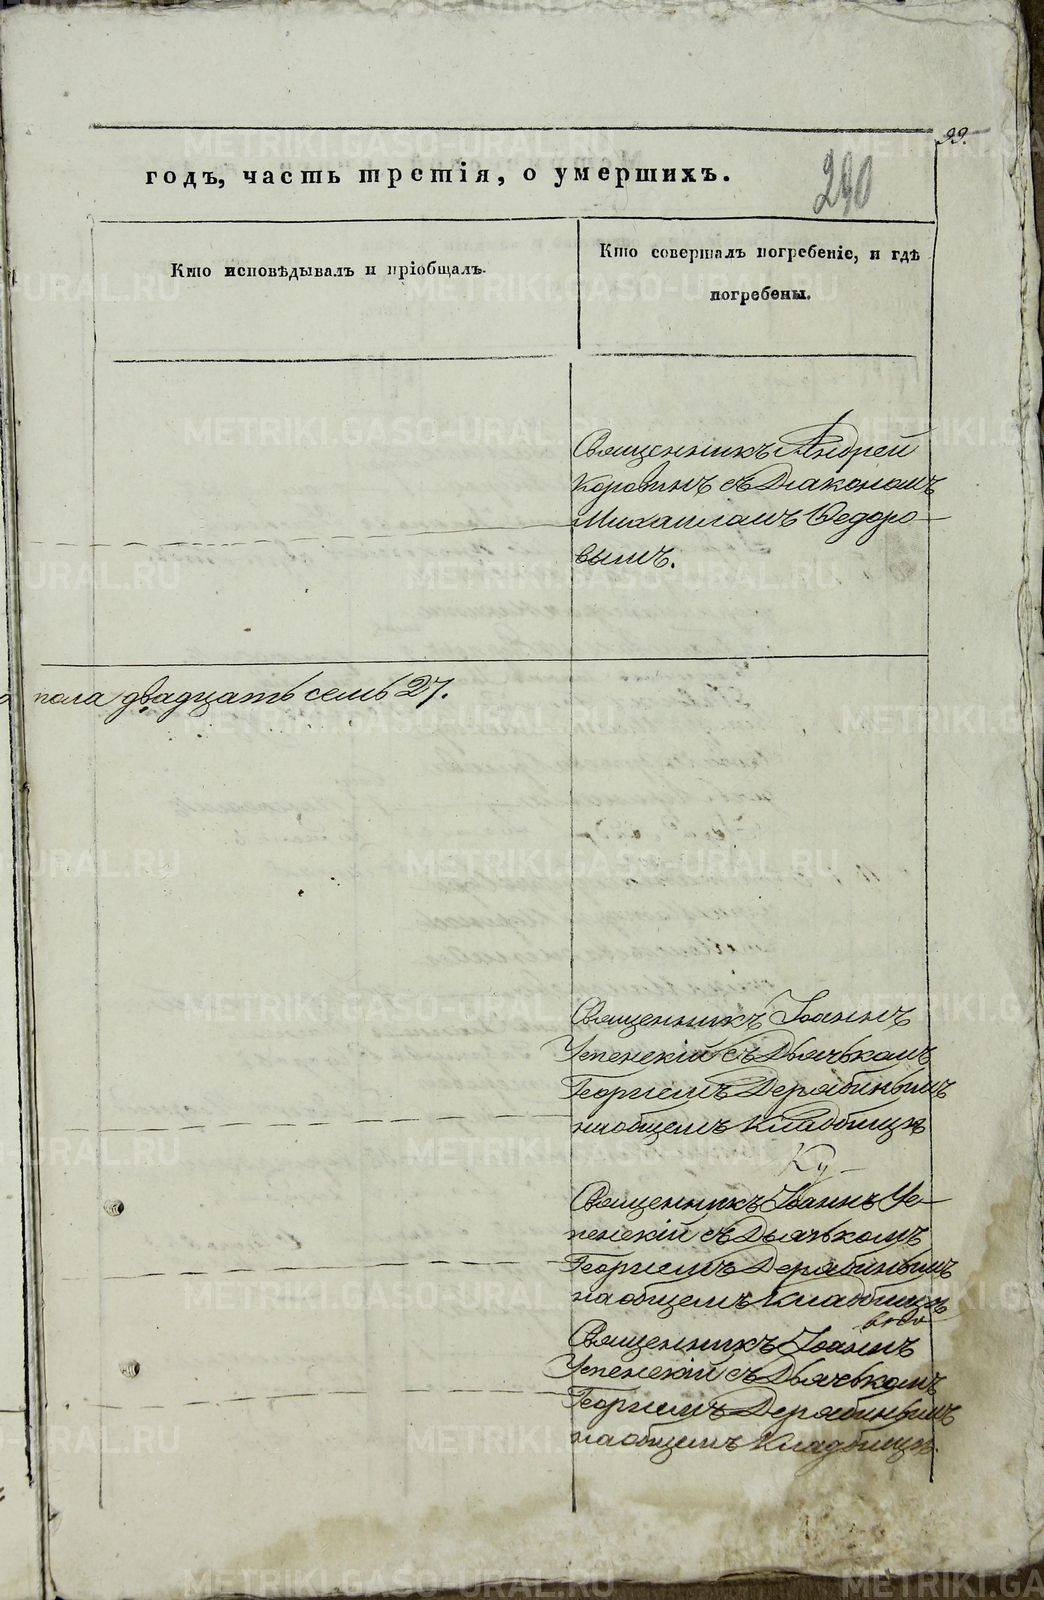 99.
годъ, часть третія, о умершихъ.
290
Кто исповѣдывалъ и пріобщалъ.
Кто совершалъ погребеніе, и гдѣ
погребены.
Священникъ Андрей
Коровинъ съ Діакономъ
Михаиломъ Ѳедоро-
вымъ.
пола двадцать семь 27.
Священникъ Іоаннъ
Успенскій съ Дьячькомъ
Георгіемъ Дерябинымъ
на общемъ кладбищѣ
Священникъ Іоаннъ Ус-
пенскій съ Дьячькомъ
Георгіемъ Дерябинымъ
на общемъ кладбищѣ
Священникъ Іоаннъ
Успенскій съ Дьячькомъ
Георгіемъ Дерябинымъ
на общемъ кладбищѣ.
METRIKI.GASO-URAL.RU